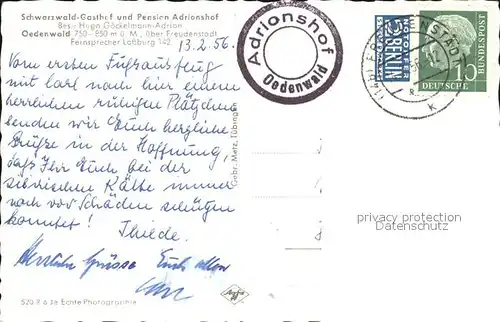 Schwarzwald-Gasthof und Pension Adrionshof
Bes.: Hugo Göckelmann-Adrion
Oedenwald 750-850 m ü. M., über Freudenstadt
Fernsprecher Loßburg 142
13.2.56.
Vom ersten Fußausflug
mit Carl nach hier einem
herrlichen ruhigen Plätzchen
senden wir Euch herzliche
Grüße in der Hoffnung,
daß Ihr Euch bei der
sibirischen Kälte immer
noch vor Schäden schützen
konntet! Thilde.
Herzliche Grüsse Euch allen
Carl
Adrionshof
Oedenwald
NOTOPFER
2 BERLIN
STEUERMARKE
FREUDENSTADT
k
10
DEUTSCHE
BUNDESPOST
Gebr. Metz, Tübingen
privacy protection
Datenschutz
Agfa
Echte Photographie